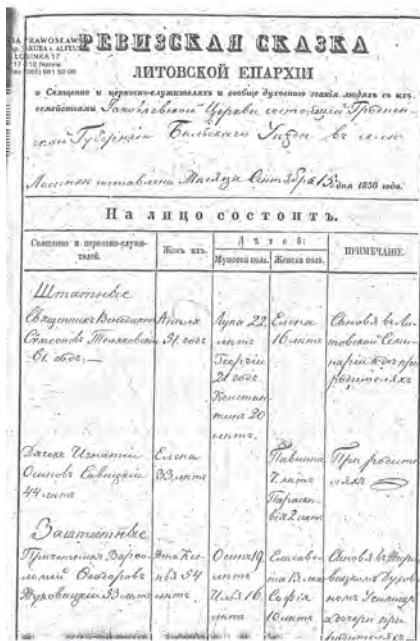 PRAWOSŁAW
JAKUBA s. ALFEUSZ
ŁOSINKA 17
17-210 Narew
РЕВИЗСКАЯ СКАЗКА
ЛИТОВСКОЙ ЕПАРХІИ
о Священно и церковно-служителяхъ и вообще духовнаго званія людяхъ съ ихъ
семействами Іаковлевской Церкви состоящей Гроднен-
ской Губерніи Бѣльскаго Уѣзда въ селѣ
составлена Мѣсяца Сентября 15 дня 1850 года.
На лицо состоитъ.
Священно и церковно-служи-
телей.
Жонъ ихъ.
Дѣтей:
Мужеска пола.
Женска пола.
ПРИМѢЧАНІЕ.
Штатные
Священникъ
Симеоновъ
61 годъ.
51 годъ
Лука 22
лѣтъ
Георгій
21 годъ
Констан-
тинъ 20
лѣтъ.
Елена
16 лѣтъ
Сыновья въ Ли-
товской Семи-
наріи при
родителяхъ
Дьячекъ Игнатій
Осиповъ Савицкій
44 лѣта
Елена
33 лѣта
Павлина
7 лѣтъ
Параске-
вія 2 лѣтъ
При родите-
ляхъ
Заштатные
Причетникъ Варѳо-
ломей Ѳеодоровъ
Жуковицкій 53 лѣтъ
54
лѣтъ
Осипъ 19
лѣтъ
Илья 16
лѣтъ
Елисаве-
та 13 лѣтъ
Софія
10 лѣтъ
Сыновья въ
Духов-
номъ Училищѣ
а дочери при
родителяхъ